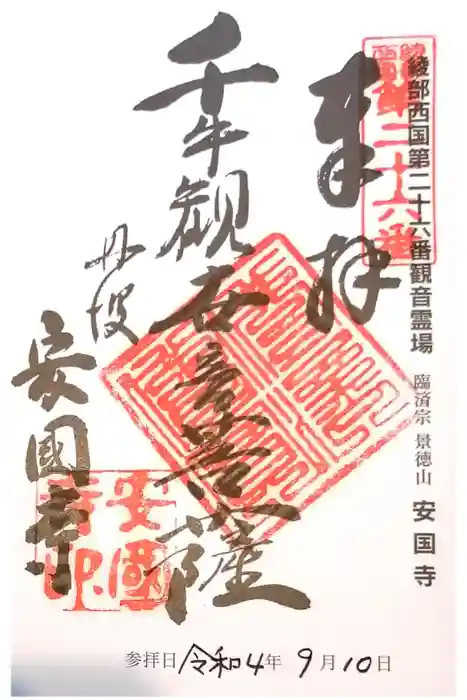 綾部西国第二十六番観音霊場 臨済宗 景徳山 安国寺
奉拝
千手観世音菩薩
丹波
安國寺
安國
寺印
参拝日 令和4年 9月10日